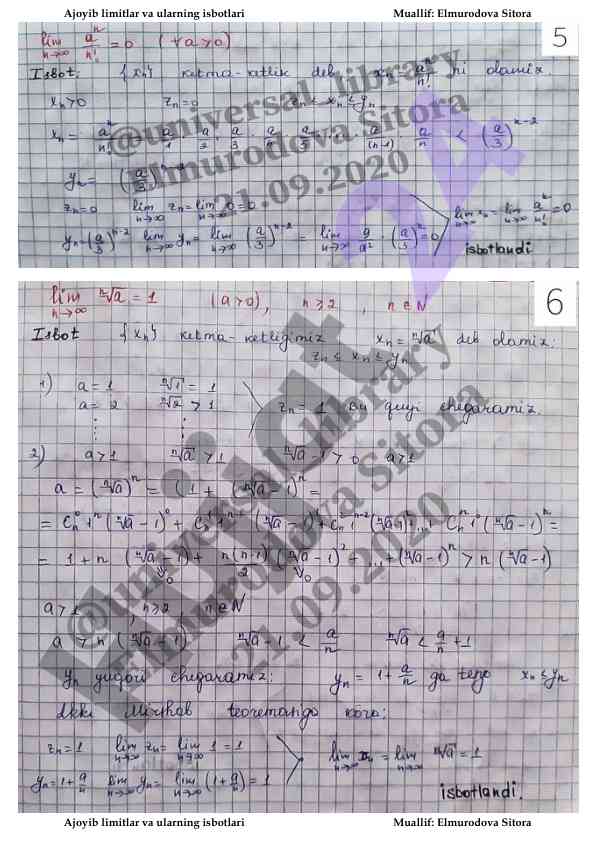 Ajoyib limitlar va ularning isbotlari Muallif: Elmurodova Sitora
5
lim n→∞ aⁿ/n! = 0 (∀a>0)
Isbot: {xₙ} ketma-ketlik deb xₙ = aⁿ/n! ni olamiz.
xₙ>0 zₙ=0 zₙ < xₙ ≤ yₙ
xₙ = aⁿ/n! = a/1 · a/2 · a/3 · a/4 · a/5 · ... · a/(n-1) · a/n < (a/3)ⁿ⁻²
yₙ = (a/3)ⁿ⁻²
zₙ=0 lim n→∞ zₙ = lim n→∞ 0 = 0
yₙ=(a/3)ⁿ⁻² lim n→∞ yₙ = lim n→∞ (a/3)ⁿ⁻² = lim n→∞ 9/a² (a/3)ⁿ = 0
lim n→∞ xₙ = lim n→∞ aⁿ/n! = 0
isbotlandi
@universal_library
Elmurodova Sitora
21.09.2020
6
lim n→∞ ⁿ√a = 1 (a>0), n≥2, n∈N
Isbot {xₙ} ketma-ketligimiz xₙ = ⁿ√a deb olamiz.
zₙ ≤ xₙ ≤ yₙ
1) a = 1 ⁿ√1 = 1
a = 2 ⁿ√2 > 1
zₙ = 1 Bu quyi chegaramiz.
2) a>1 ⁿ√a > 1 ⁿ√a - 1 > 0 a>1
a = (ⁿ√a)ⁿ = (1 + (ⁿ√a - 1)ⁿ =
= Cₙ⁰ 1ⁿ (ⁿ√a - 1)⁰ + Cₙ¹ 1ⁿ⁻¹ (ⁿ√a - 1)¹ + Cₙ² 1ⁿ⁻² (ⁿ√a - 1)² + ... + Cₙⁿ 1⁰ (ⁿ√a - 1)ⁿ =
= 1 + n (ⁿ√a - 1) + n(n-1)/2 (ⁿ√a - 1)² + ... + (ⁿ√a - 1)ⁿ > n (ⁿ√a - 1)
a>1 n≥2 n∈N
a > n (ⁿ√a - 1) ⁿ√a - 1 < a/n ⁿ√a < a/n + 1
yₙ yuqori chegaramiz: yₙ = 1 + a/n ga teng xₙ ≤ yₙ
Ikki Mirshab teoremanga ko'ra:
zₙ = 1 lim n→∞ zₙ = lim n→∞ 1 = 1
yₙ = 1 + a/n lim n→∞ yₙ = lim n→∞ (1 + a/n) = 1
lim n→∞ xₙ = lim n→∞ ⁿ√a = 1
isbotlandi.
@universal_library
Elmurodova Sitora
21.09.2020
Ajoyib limitlar va ularning isbotlari Muallif: Elmurodova Sitora